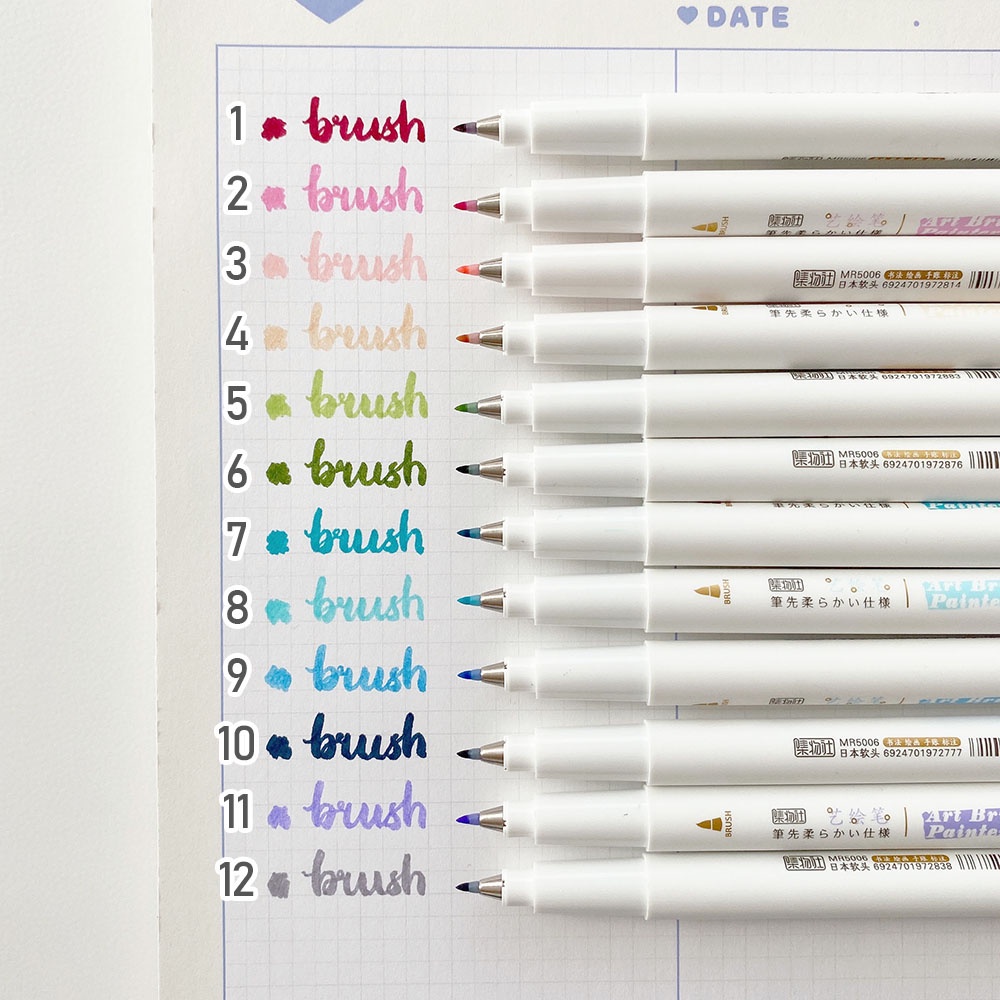 DATE
1 brush
2 brush
BRUSH 集物社 艺绘笔 Art Br
筆先柔らかい仕様 Painte
3 brush
集物社 MR5006 书法 绘画 手账 标注
日本软头 6924701972814
4 brush
筆先柔らかい仕様
5 brush
日本软头 6924701972883
6 brush
集物社 MR5006 书法 绘画 手账 标注
日本软头 6924701972876
7 brush
Painte
8 brush
BRUSH 集物社 艺绘笔 Art Br
筆先柔らかい仕様 Painte
9 brush
10 brush
集物社 MR5006 书法 绘画 手账 标注
日本软头 6924701972777
11 brush
BRUSH 集物社 艺绘笔 Art Br
筆先柔らかい仕様 Painte
12 brush
集物社 MR5006 书法 绘画 手账 标注
日本软头 6924701972838